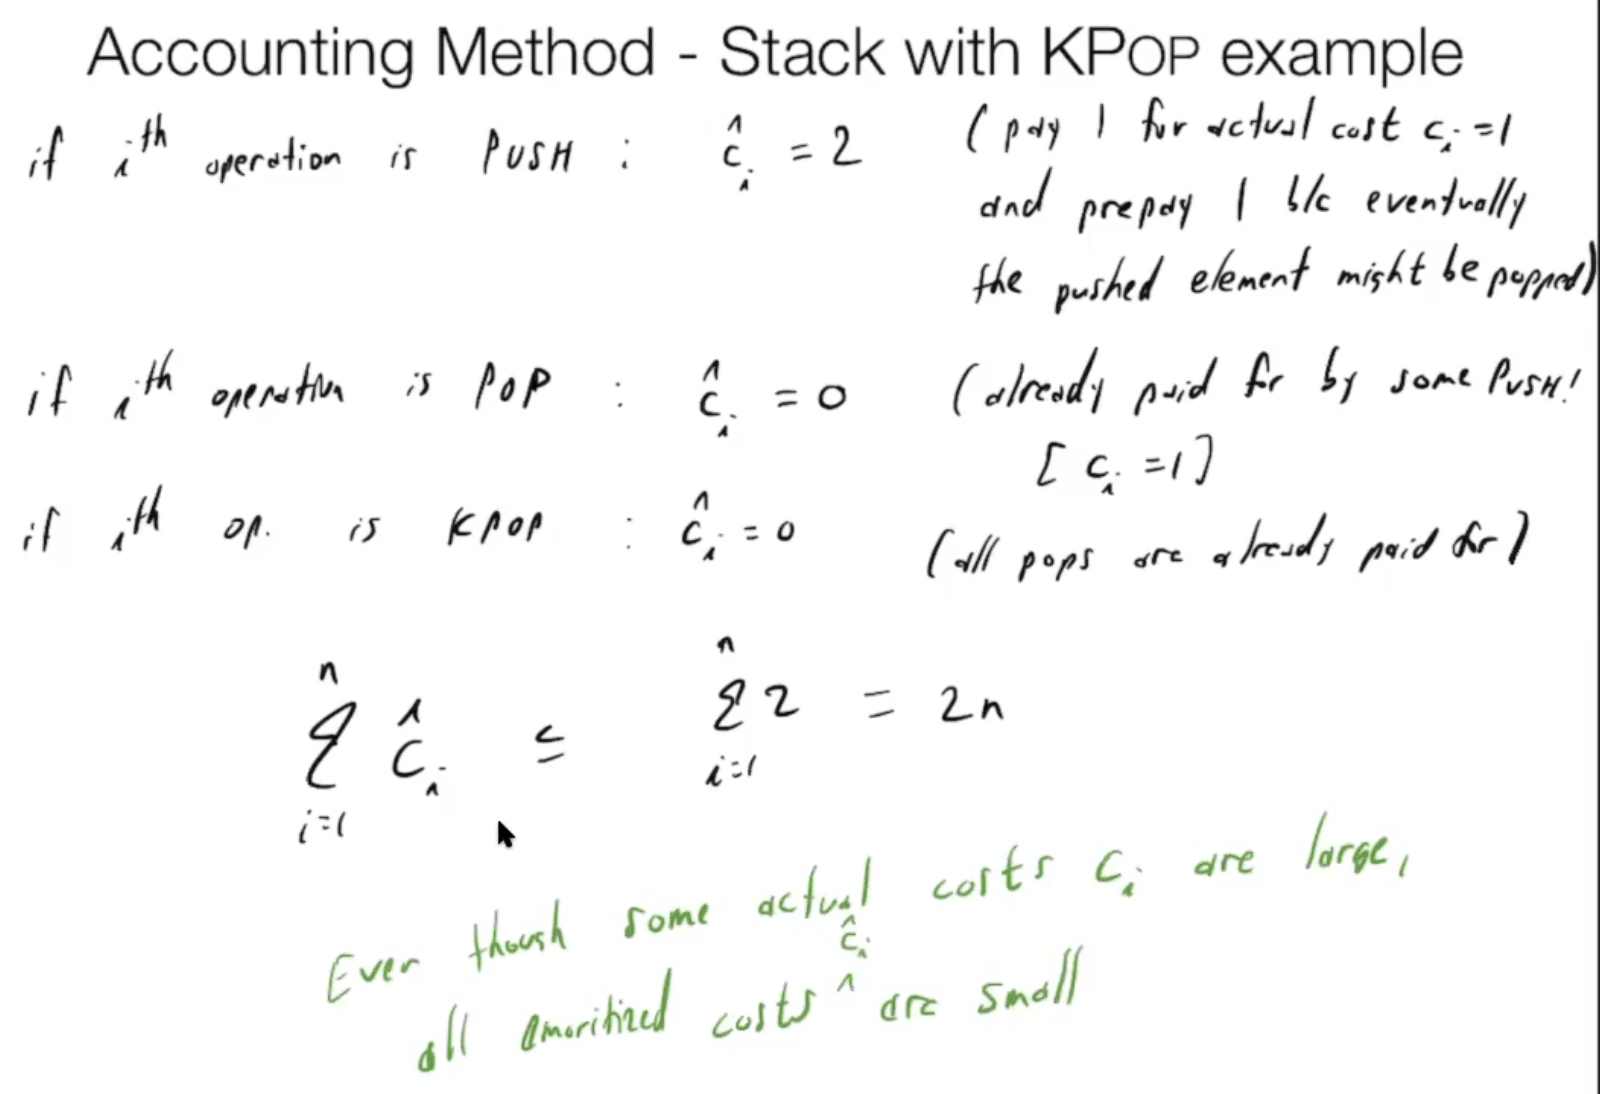 Accounting Method - Stack with KPOP example
if iᵗʰ operation is PUSH : ĉᵢ = 2 (pay 1 for actual cost cᵢ = 1
and prepay 1 b/c eventually
the pushed element might be popped)
if iᵗʰ operation is POP : ĉᵢ = 0 (already paid for by some PUSH!
[cᵢ = 1]
if iᵗʰ op. is KPOP : ĉᵢ = 0 (all pops are already paid for)
n n
Σ ĉᵢ ≤ Σ 2 = 2n
i=1 i=1
Even though some actual costs cᵢ are large,
ĉᵢ
all amoritized costs ^ are small